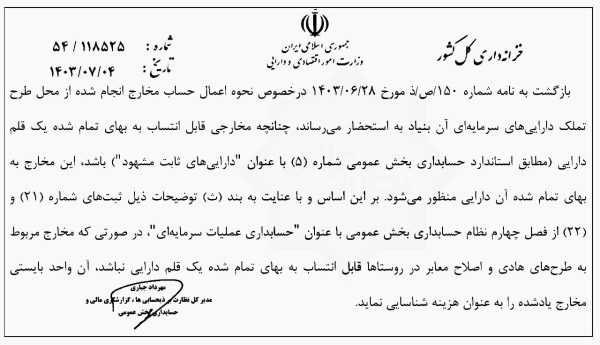 جمهوری اسلامی ایران
وزارت امور اقتصادی و دارایی
خزانه‌داری کل کشور
شماره : ۱۱۸۵۲۵ / ۵۴
تاریخ : ۱۴۰۳/۰۷/۰۴
بازگشت به نامه شماره ۱۵۰/ص/ذ مورخ ۱۴۰۳/۰۶/۲۸ درخصوص نحوه اعمال حساب مخارج انجام شده از محل طرح
تملک دارایی‌های سرمایه‌ای آن بنیاد به استحضار می‌رساند، چنانچه مخارجی قابل انتساب به بهای تمام شده یک قلم
دارایی (مطابق استاندارد حسابداری بخش عمومی شماره (۵) با عنوان "دارایی‌های ثابت مشهود") باشد، این مخارج به
بهای تمام شده آن دارایی منظور می‌شود. بر این اساس و با عنایت به بند (ث) توضیحات ذیل ثبت‌های شماره (۲۱) و
(۲۲) از فصل چهارم نظام حسابداری بخش عمومی با عنوان "حسابداری عملیات سرمایه‌ای"، در صورتی که مخارج مربوط
به طرح‌های هادی و اصلاح معابر در روستاها قابل انتساب به بهای تمام شده یک قلم دارایی نباشد، آن واحد بایستی
مخارج یادشده را به عنوان هزینه شناسایی نماید.
مهرداد جباری
مدیر کل نظارت بر ذیحسابی ها ، گزارشگری مالی و
حسابداری بخش عمومی